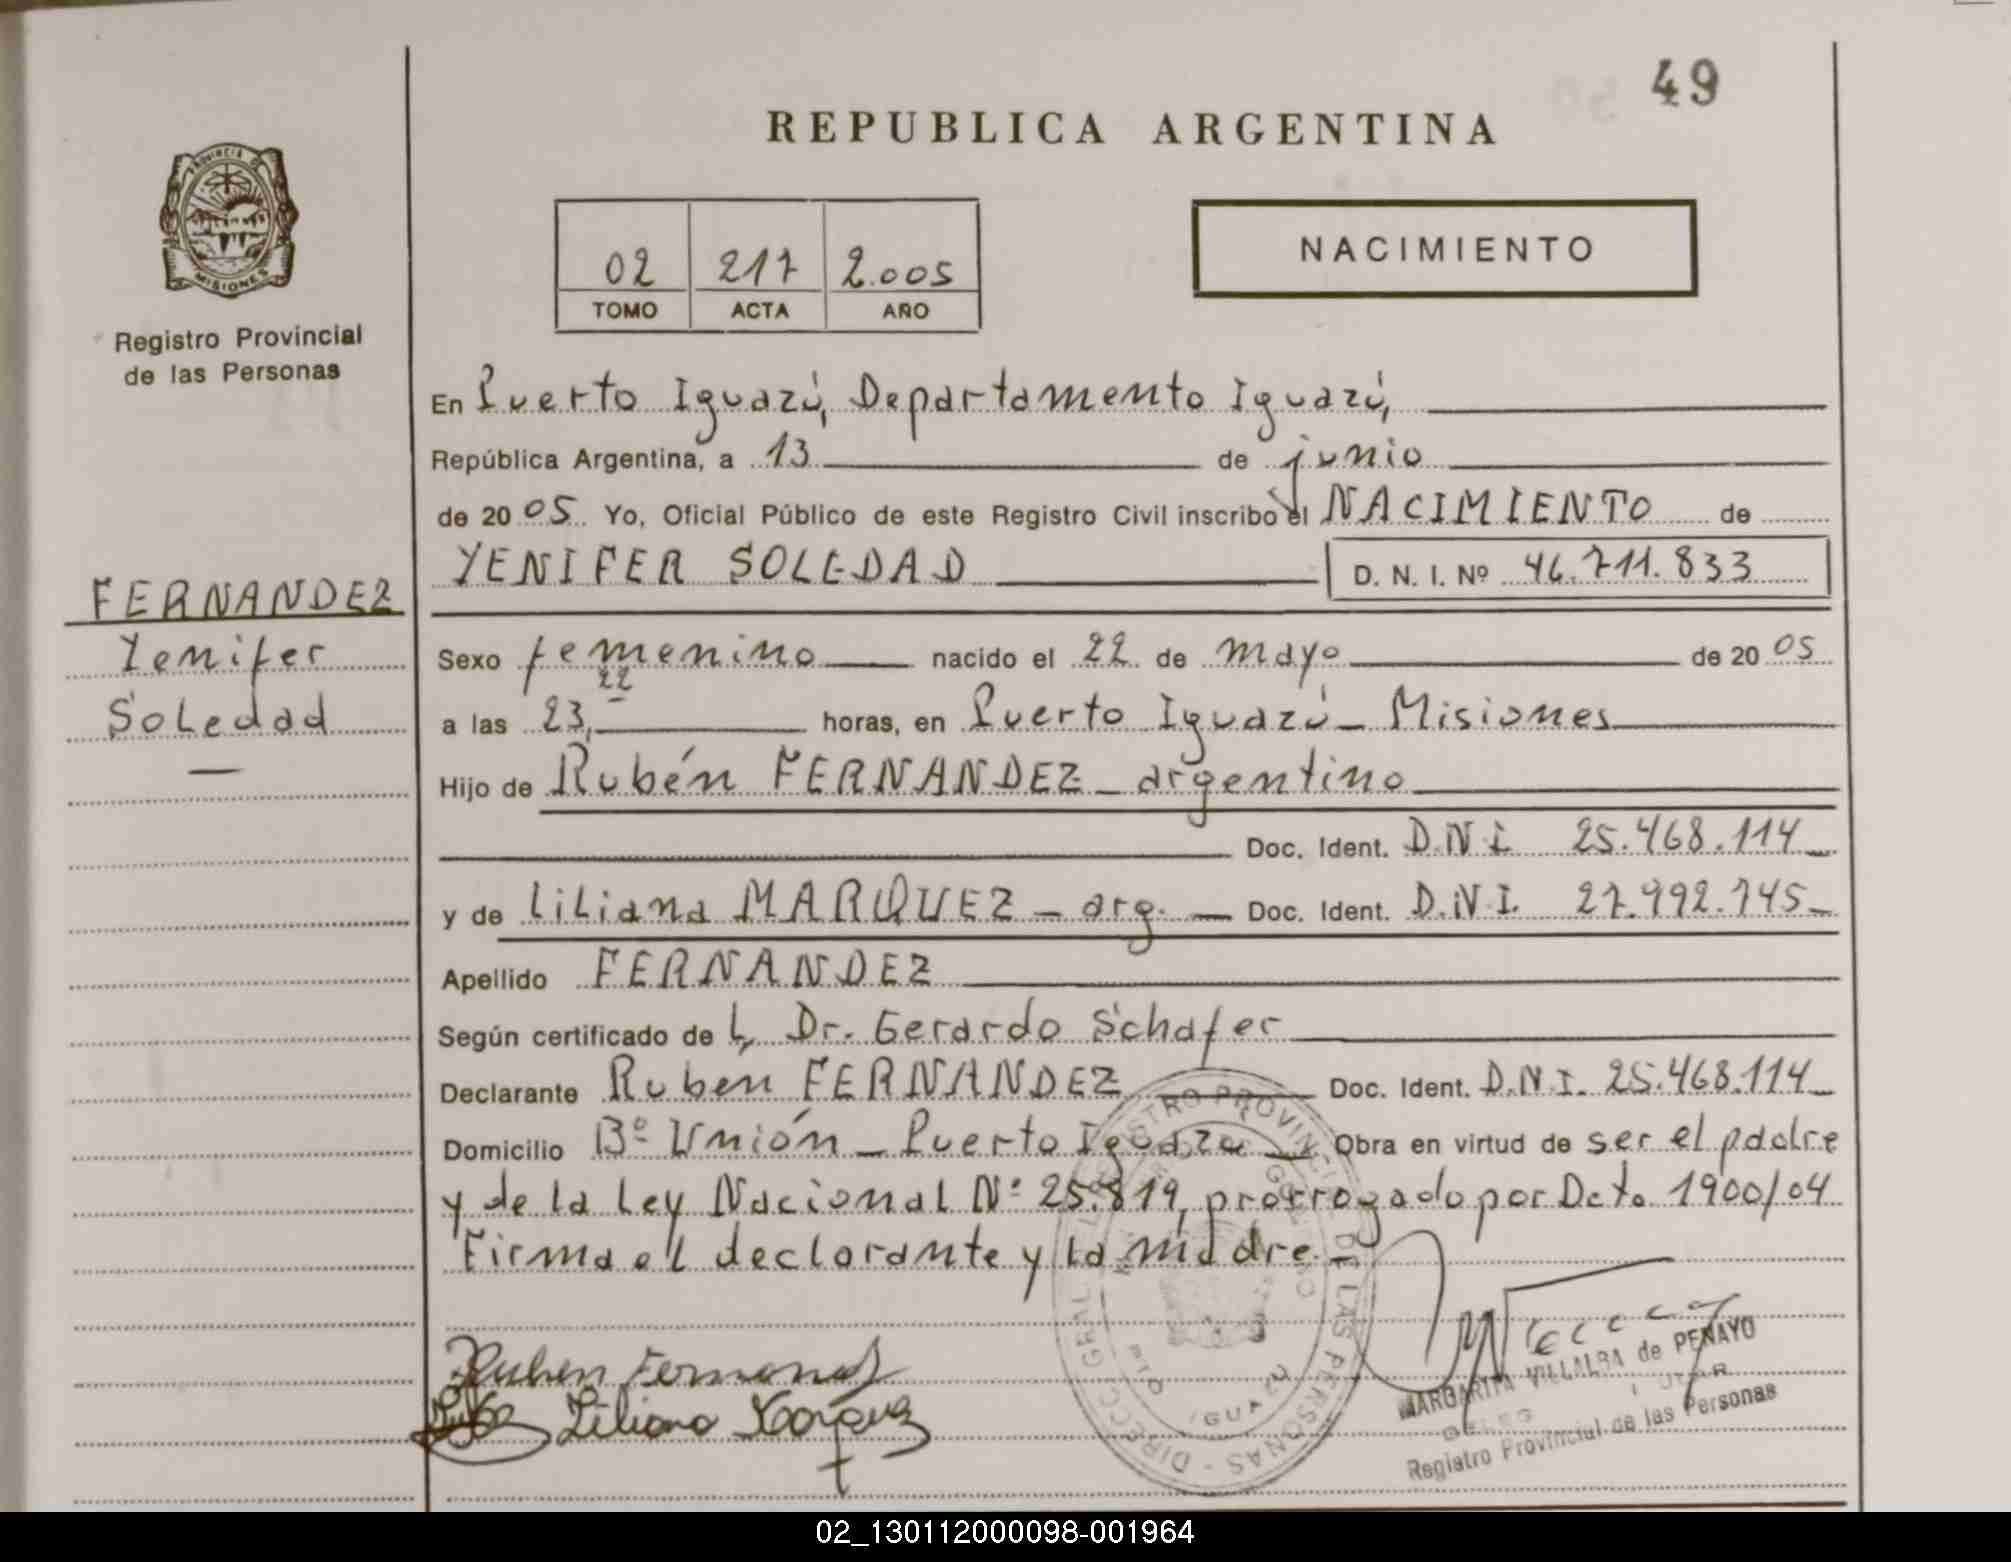 49
REPUBLICA ARGENTINA
PROVINCIA DE
MISIONES
Registro Provincial
de las Personas
02 217 2.005
TOMO ACTA AÑO
NACIMIENTO
En Puerto Iguazú, Departamento Iguazú,
República Argentina, a 13 de junio
de 2005 Yo, Oficial Público de este Registro Civil inscribo el NACIMIENTO de
YENIFER SOLEDAD D. N. I. Nº 46.711.833
FERNANDEZ
Yenifer
Soledad
Sexo femenino nacido el 22 de mayo de 2005
a las 23,22 horas, en Puerto Iguazú – Misiones
Hijo de Rubén FERNANDEZ – argentino
Doc. Ident. D.N.I. 25.468.114
y de Liliana MARQUEZ – arg. – Doc. Ident. D.N.I. 27.992.745
Apellido FERNANDEZ
Según certificado de Dr. Gerardo Schafer
Declarante Ruben FERNANDEZ Doc. Ident. D.N.I. 25.468.114
Domicilio Bº Unión – Puerto Iguazú – Obra en virtud de ser el padre
y de la Ley Nacional Nº 25.819, prorrogado por Dcto. 1900/04
Firma el declarante y la madre.
Ruben Fernandez
Liliana Marquez
DIRECC. GRAL. DEL REGISTRO PROVINCIAL DE LAS PERSONAS
IGUAZU
MARGARITA VILLALBA de PENAYO
Registro Provincial de las Personas
02_130112000098-001964